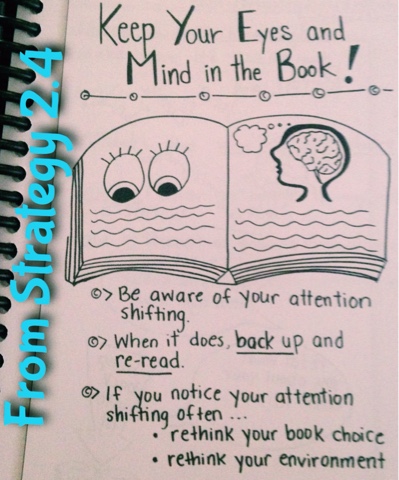 Keep Your Eyes and
Mind in the Book!
Be aware of your attention
shifting.
When it does, back up and
re-read.
If you notice your attention
shifting often ...
• rethink your book choice
• rethink your environment
From Strategy 2.4